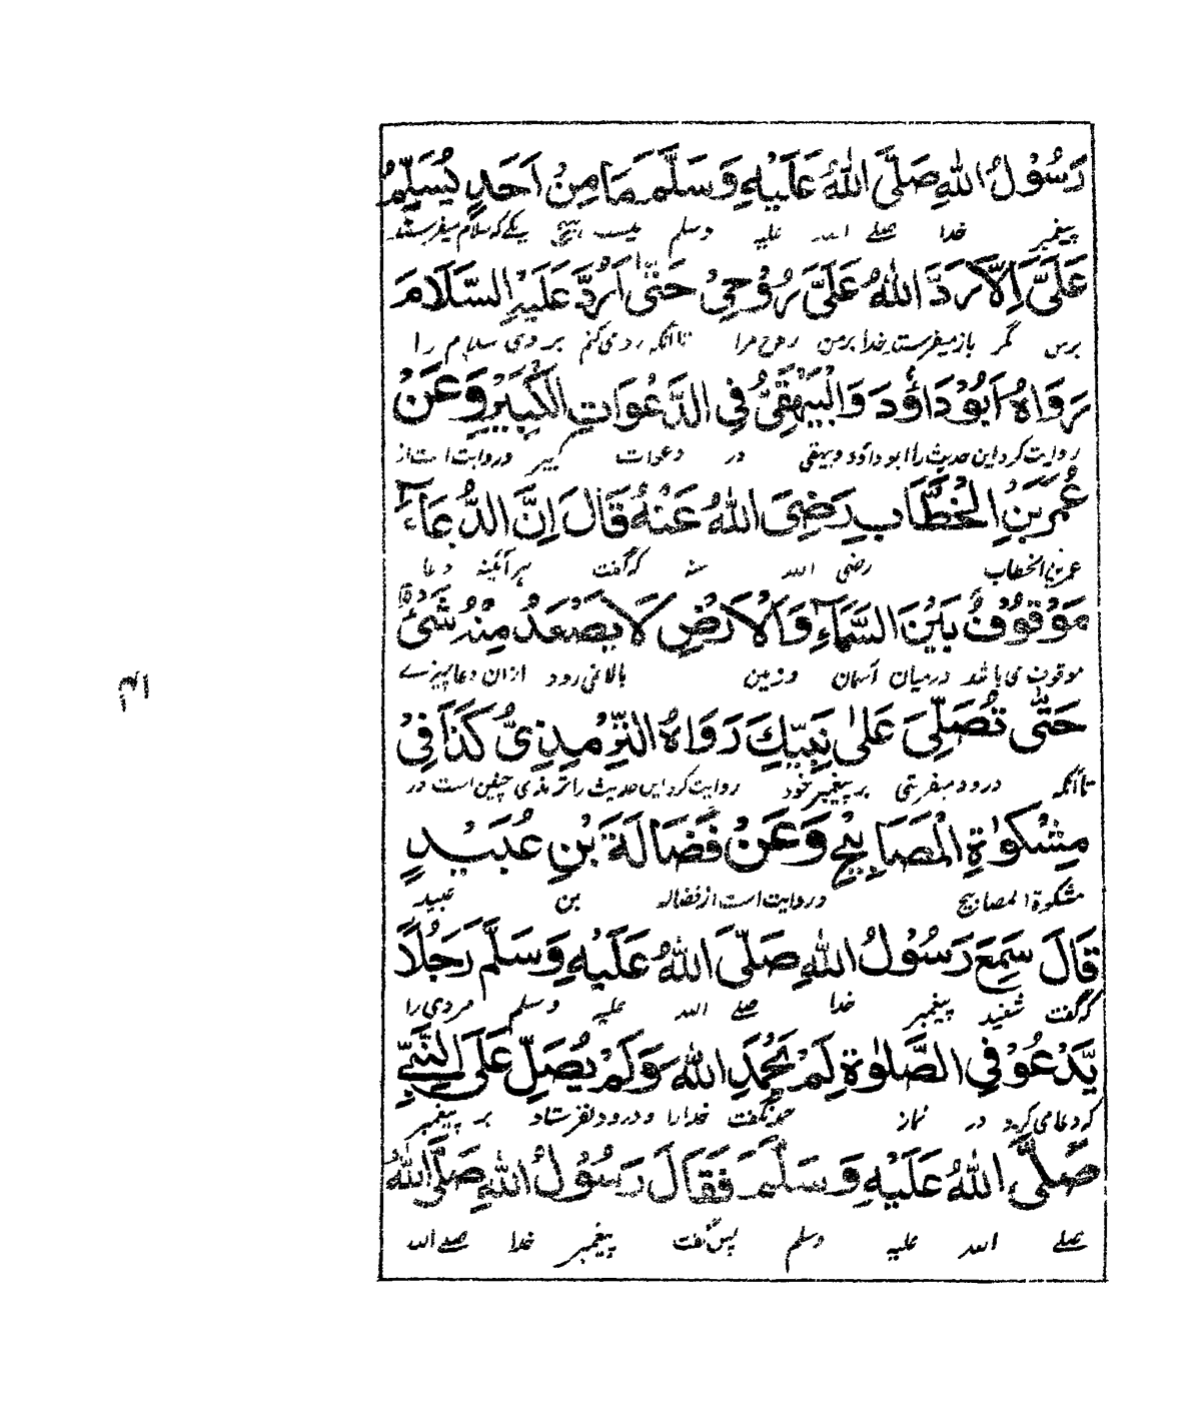 رَسُوْلُ اللهِ صَلَّى اللهُ عَلَيْهِ وَسَلَّمَ مَا مِنْ اَحَدٍ يُسَلِّمُ
پیغمبر خدا صلے الله علیه وسلم نیست هیچ یکے که سلام میفرستد
عَلَيَّ اِلَّا رَدَّ اللهُ عَلَيَّ رُوْحِيْ حَتّٰى اَرُدَّ عَلَيْهِ السَّلَامَ
برمن مگر باز میفرستد خدا برمن روح مرا تا آنکه رد می کنم بر وی سلام را
رَوَاهُ اَبُوْ دَاؤُدَ وَالْبَيْهَقِيُّ فِي الدَّعَوَاتِ الْكَبِيْرِ وَعَنْ
روایت کرد این حدیث را ابو داؤد وبیهقی در دعوات کبیر وروایت است از
عُمَرَ بْنِ الْخَطَّابِ رَضِيَ اللهُ عَنْهُ قَالَ اِنَّ الدُّعَاءَ
عمر بن الخطاب رضی الله عنه که گفت هر آئینه دعا
مَوْقُوْفٌ بَيْنَ السَّمَآءِ وَالْاَرْضِ لَا يَصْعَدُ مِنْهُ شَيْءٌ
موقوف می باشد درمیان آسمان وزمین بالا نمی رود ازان دعا چیزے
حَتّٰى تُصَلِّيَ عَلٰى نَبِيِّكَ رَوَاهُ التِّرْمِذِيُّ كَذَا فِيْ
تا آنکه درود میفرستی بر پیغمبر خود روایت کرد این حدیث را ترمذی چنین است در
مِشْكٰوةِ الْمَصَابِيْحِ وَعَنْ فَضَالَةَ بْنِ عُبَيْدٍ
مشکوة المصابیح وروایت است از فضاله بن عبید
قَالَ سَمِعَ رَسُوْلُ اللهِ صَلَّى اللهُ عَلَيْهِ وَسَلَّمَ رَجُلًا
که گفت شنید پیغمبر خدا صلے الله علیه وسلم مردی را
يَّدْعُوْ فِي الصَّلٰوةِ لَمْ يَحْمَدِ اللهَ وَلَمْ يُصَلِّ عَلَى النَّبِيِّ
که دعا می کرد در نماز حمد نگفت خدا را ودرود نفرستاد بر پیغمبر
صَلَّى اللهُ عَلَيْهِ وَسَلَّمَ فَقَالَ رَسُوْلُ اللهِ صَلَّى اللهُ
صلے الله علیه وسلم پس گفت پیغمبر خدا صلے الله